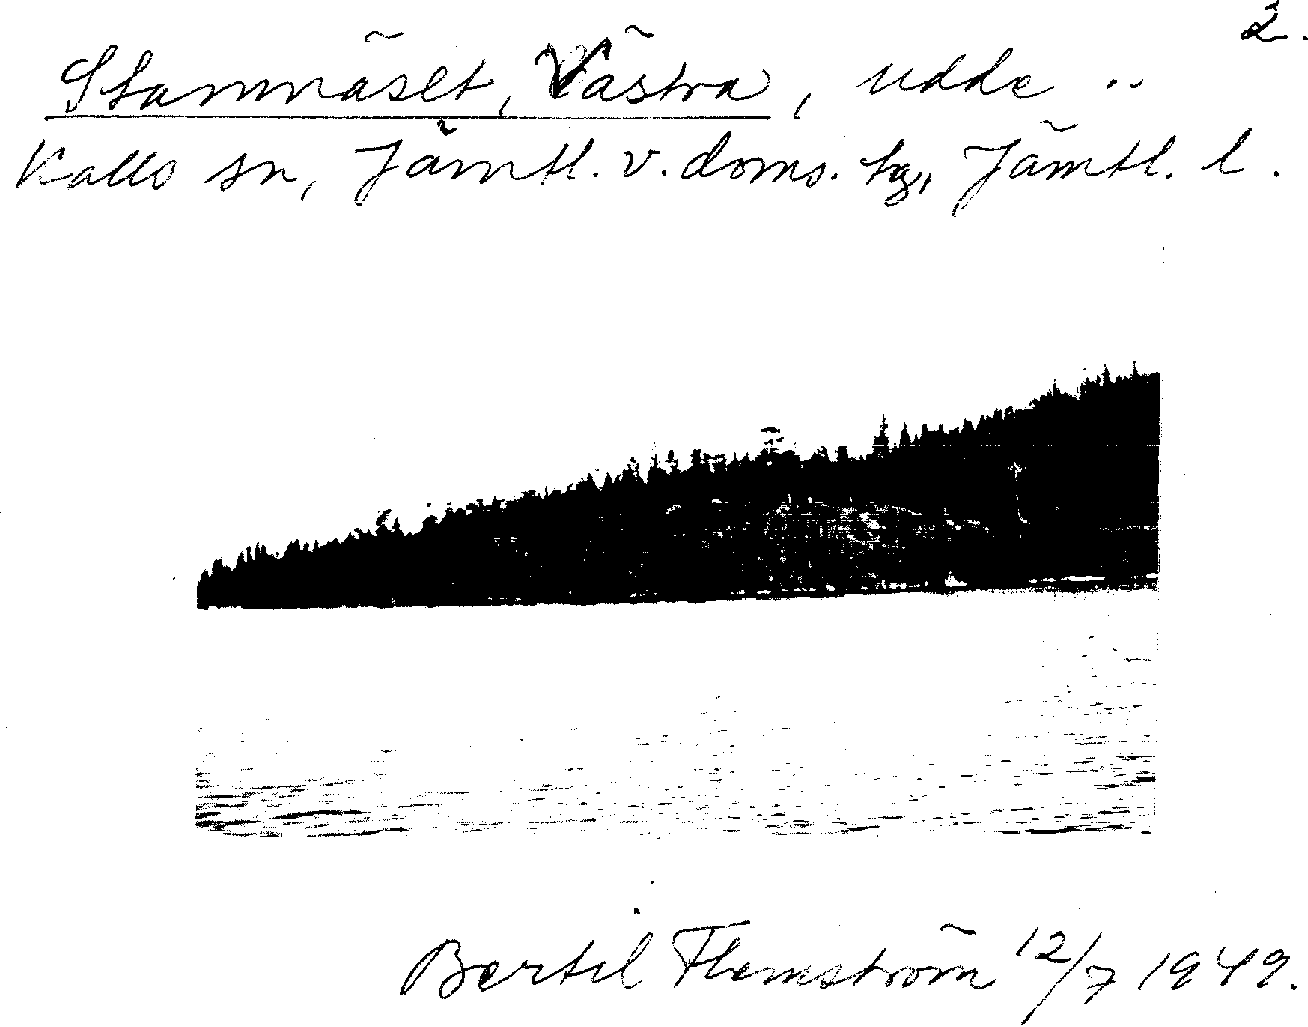 2.
Stamnäset, Västra, udde ..
Kalls sn, Jämtl. v. doms. tg, Jämtl. l.
Bertil Flemström 12/7 1949.